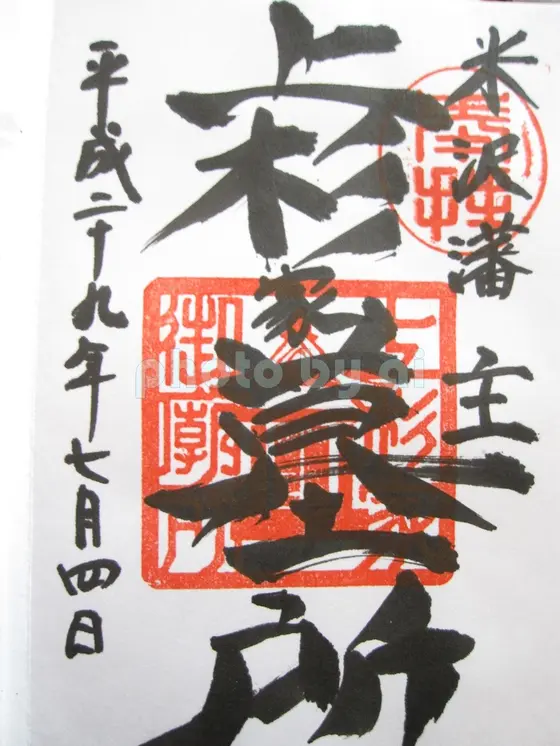 奉拝
米沢藩主
上杉家墓所
上杉家
御廟所
平成二十九年七月四日
photo by ai